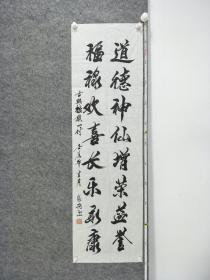 道德神仙增荣益誉
福禄欢喜长乐永康